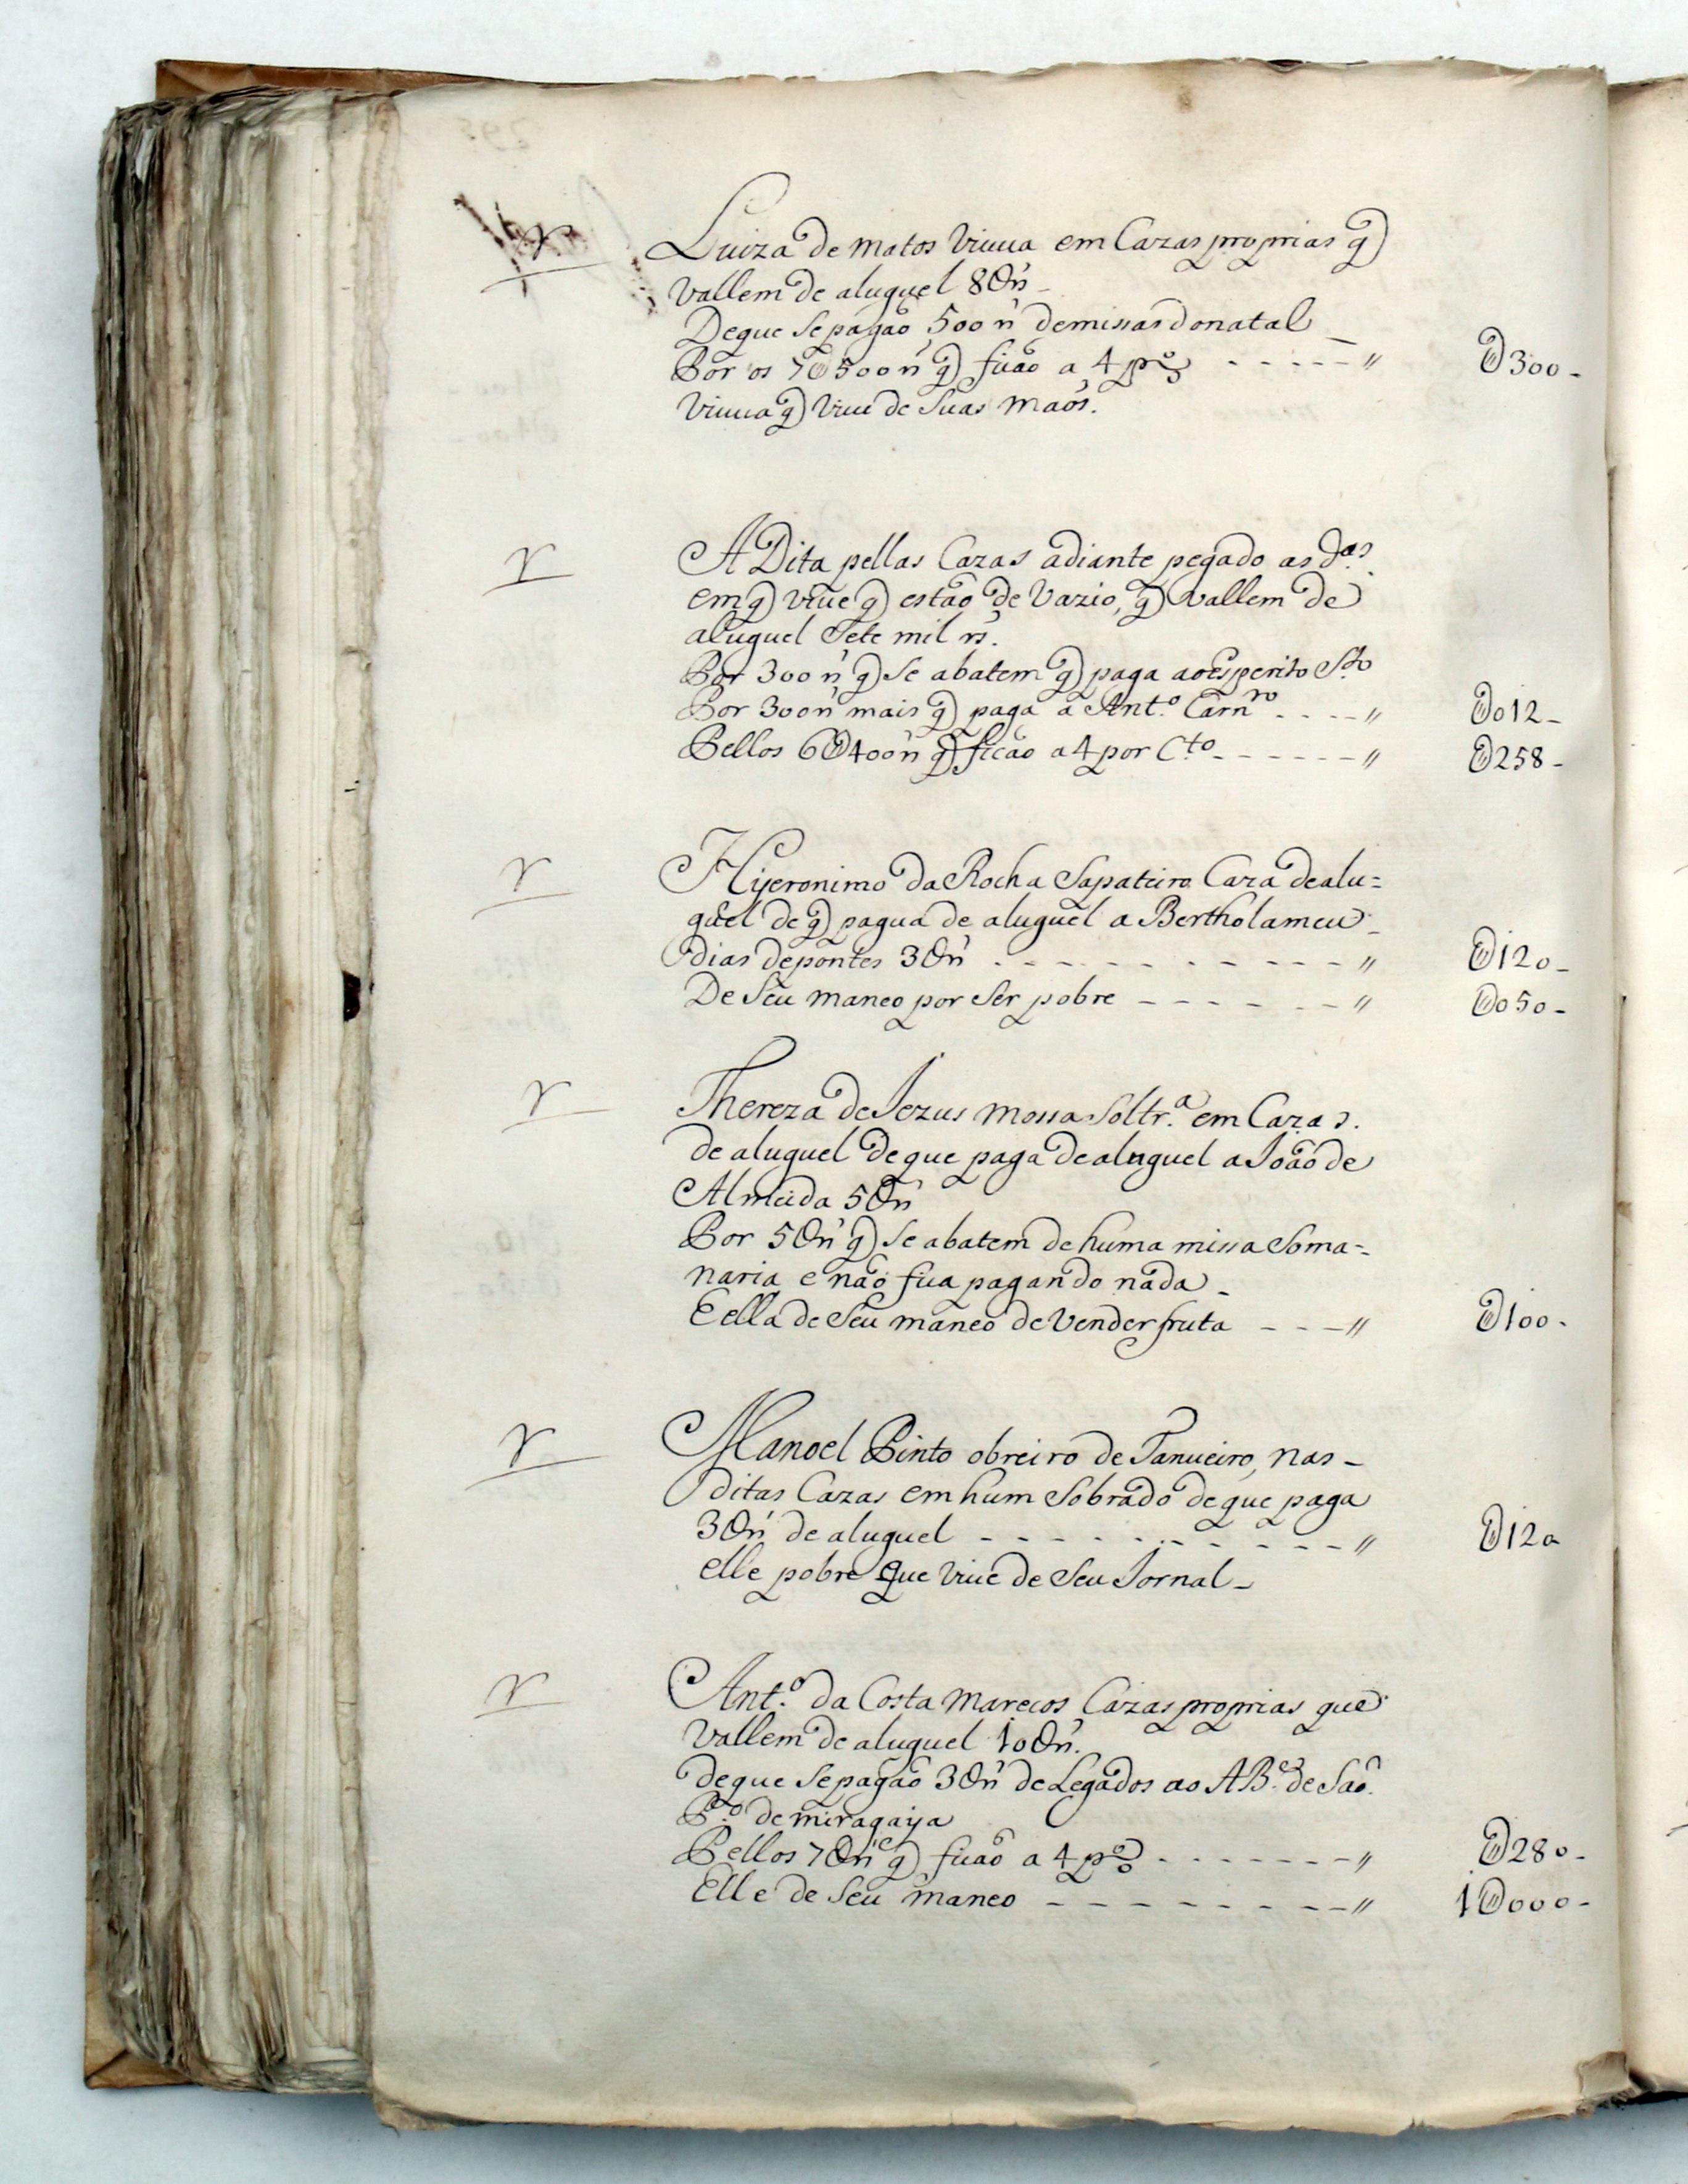 Luiza de matos Viuua em Cazas proprias q̃
Vallem de aluguel 8U rs
Deque Se pagão 500 rs demissas do natal
Por os 7U500 rs q̃ ficão a 4 p.co U300
Viuua q̃ Viue de Suas maos.
A Dita pellas Cazas adiante pegado as d.as
em q̃ viue q̃ estão de Vazio, q̃ vallem de
aluguel Sete mil rs.
Por 300 rs q̃ Se abatem q̃ paga ao esperito S.to
Por 300 rs mais q̃ paga a Ant.o Carn.ro U012
Pellos 6U400 rs q̃ ficão a 4 por C.to U258
Hyeronimo da Rocha Sapateiro Caza dealu=
guel de q̃ pagua de aluguel a Bertholameu
dias depontes 3U rs U120
De Seu maneo por Ser pobre U050
Thereza de Jezus mossa Soltr.a em Cazas.
de aluguel deque paga de aluguel a João de
Almeida 5U rs
Por 5U rs q̃ Se abatem de huma missa Soma=
naria e não fica pagando nada
E ella de Seu maneo de Vender fruta U100
Manoel Pinto obreiro de Tanueiro, nas
ditas Cazas em hum Sobrado deque paga
3U rs de aluguel U120
elle pobre que viue de Seu Jornal
Ant.o da Costa marecos Cazas proprias que
Vallem de aluguel 10U rs.
deque Sepagão 3U rs de Legados ao AB.e de São
P.o de miragaya
Pellos 7U rs q̃ ficão a 4 p.co U280
Elle de Seu maneo 1U000